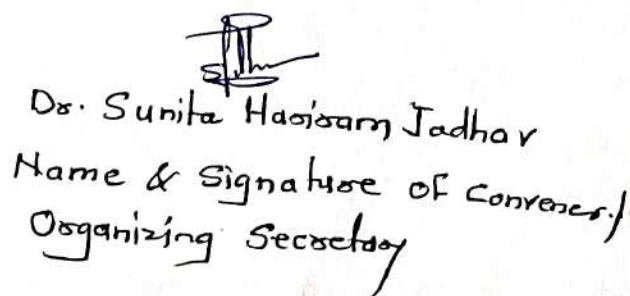 Dr. Sunita Hariram Jadhav
Name & Signature of Convener/
Organizing Secretary